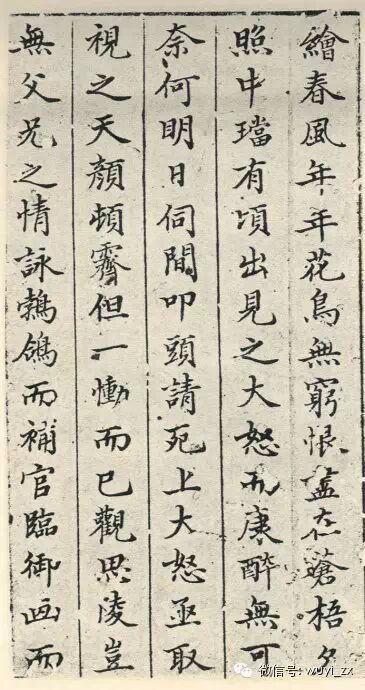 繪春風年年花鳥無窮恨盡在蒼梧夕
照中璫有頃出見之大怒而康醉無可
奈何明日伺間叩頭請死上大怒亟取
視之天顏頓霽但一慟而已觀思陵豈
無父兄之情詠鶺鴒而補官臨御画而
微信号: wuyi_zx